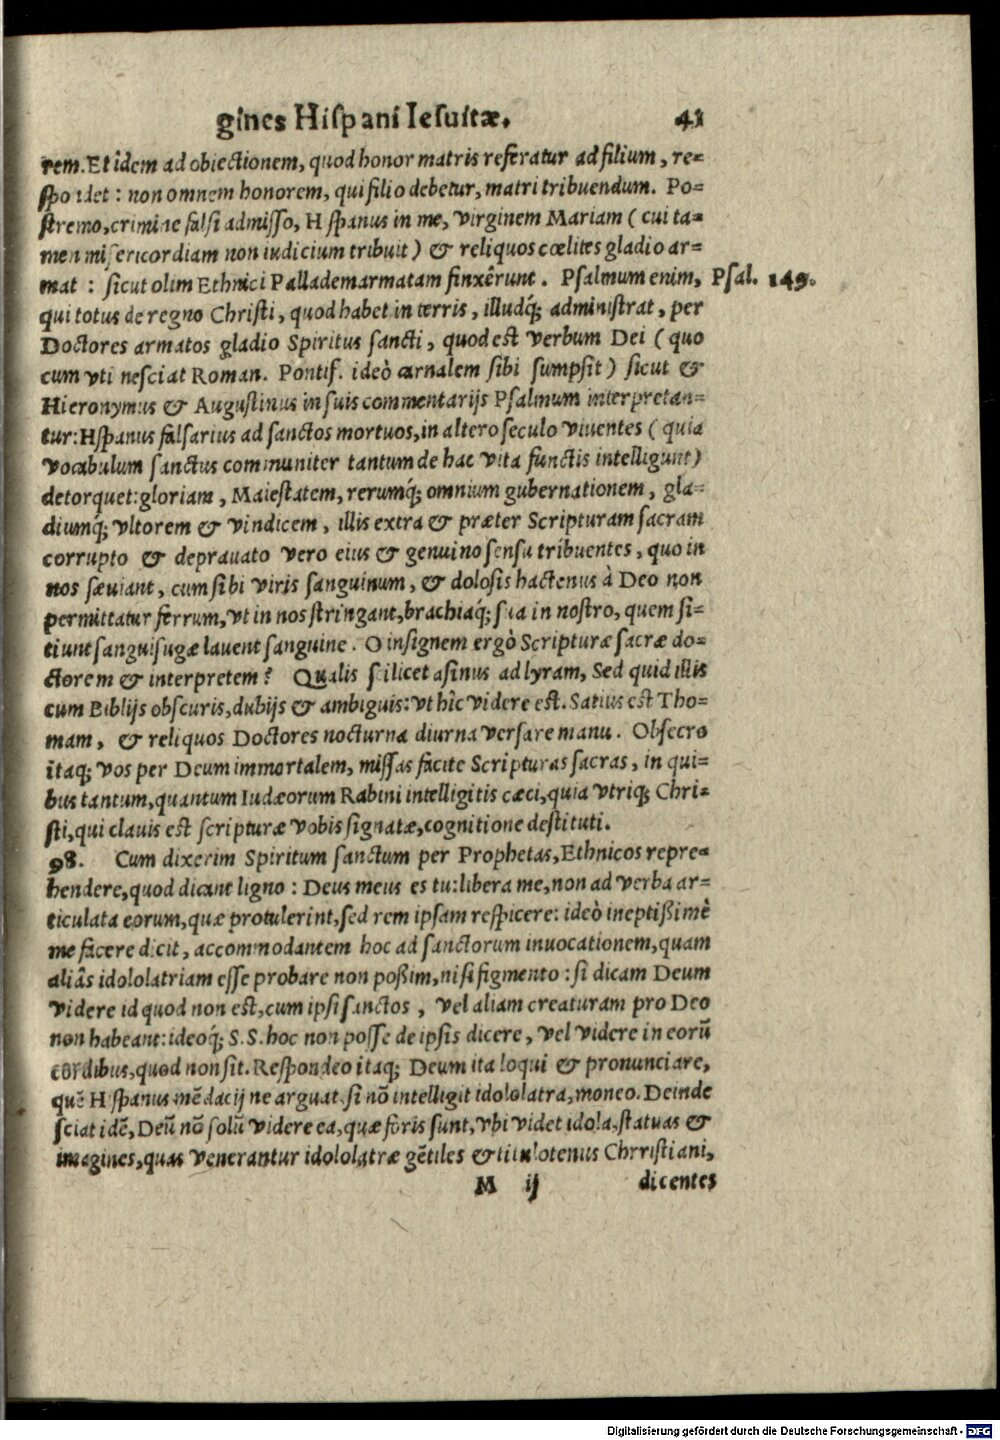 gines Hiſpani Ieſuitæ. 43
rem. Et idem ad obiectionem, quod honor matris referatur ad filium, re=
ſpo idet : non omnem honorem, qui filio debetur, matri tribuendum. Po=
ſtremo, crimine falſi admiſſo, H ſpanus in me, virginem Mariam ( cui ta=
men miſericordiam non iudicium tribuit ) & reliquos cœlites gladio ar=
mat : ſicut olim Ethnici Palladem armatam finxêrunt . Pſalmum enim, Pſal. 149.
qui totus de regno Chriſti, quod habet in terris, illudq́; adminiſtrat, per
Doctores armatos gladio Spiritus ſancti, quod eſt verbum Dei ( quo
cum vti neſciat Roman. Pontif. ideò carnalem ſibi ſumpſit ) ſicut &
Hieronymus & Auguſtinus in ſuis commentarijs Pſalmum interpretan=
tur: Hſpanus falſarius ad ſanctos mortuos, in altero ſeculo viuentes ( quia
vocabulum ſanctus communiter tantum de hac vita functis intelligunt )
detorquet: gloriam, Maieſtatem, rerumq́; omnium gubernationem, gla=
diumq́; vltorem & vindicem, illis extra & præter Scripturam ſacram
corrupto & deprauato vero eius & genuino ſenſu tribuentes, quo in
nos ſæuiant, cum ſibi viris ſanguinum, & doloſis hactenus à Deo non
permittatur ferrum, vt in nos ſtringant, brachiaq́; ſua in noſtro, quem ſi=
tiunt ſanguiſugæ lauent ſanguine. O inſignem ergò Scripturæ ſacræ do=
ctorem & interpretem? Qualis ſcilicet aſinus ad lyram, Sed quid illis
cum Biblijs obſcuris, dubijs & ambiguis: vt hîc videre eſt. Satius eſt Tho=
mam, & reliquos Doctores nocturna diurna verſare manu. Obſecro
itaq; vos per Deum immortalem, miſſas facite Scripturas ſacras, in qui=
bus tantum, quantum Iudæorum Rabini intelligitis cæci, quia vtriq; Chri=
ſti, qui clauis eſt ſcripturæ vobis ſignatæ, cognitione deſtituti.
98. Cum dixerim Spiritum ſanctum per Prophetas, Ethnicos repre=
hendere, quod dicant ligno : Deus meus es tu: libera me, non ad verba ar=
ticulata eorum, quæ protulerint, ſed rem ipſam reſpicere: ideò ineptißimè
me facere dicit, accommodantem hoc ad ſanctorum inuocationem, quam
aliâs idololatriam eſſe probare non poßim, niſi figmento : ſi dicam Deum
videre id quod non eſt, cum ipſi ſanctos, vel aliam creaturam pro Deo
non habeant: ideoq́; S. S. hoc non poſſe de ipſis dicere, vel videre in eorũ
cordibus, quod non ſit. Reſpondeo itaq; Deum ita loqui & pronunciare,
quẽ H ſpanus mẽdacij ne arguat. ſi nõ intelligit idololatra, moneo. Deinde
ſciat idẽ, Deũ nõ ſolũ videre ea, quæ foris ſunt, vbi videt idola, ſtatuas &
imagines, quas venerantur idololatræ gẽtiles & titulotenus Chrriſtiani,
M ij dicentes
Digitalisierung gefördert durch die Deutsche Forschungsgemeinschaft - DFG